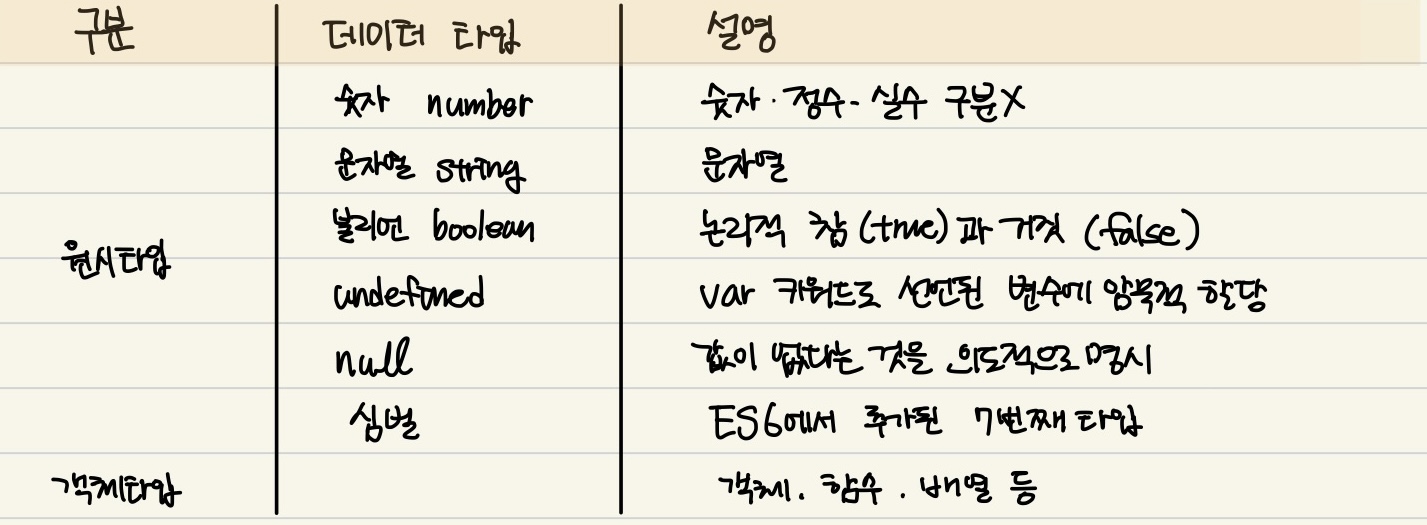 구분 데이터 타입 설명
숫자 number 숫자·정수-실수 구분X
문자열 string 문자열
불리언 boolean 논리적 참 (true)과 거짓 (false)
원시타입
undefined var 키워드로 선언된 변수에 암묵적 할당
null 값이 없다는 것을 의도적으로 명시
심벌 ES6에서 추가된 7번째 타입
객체타입 객체. 함수. 배열 등